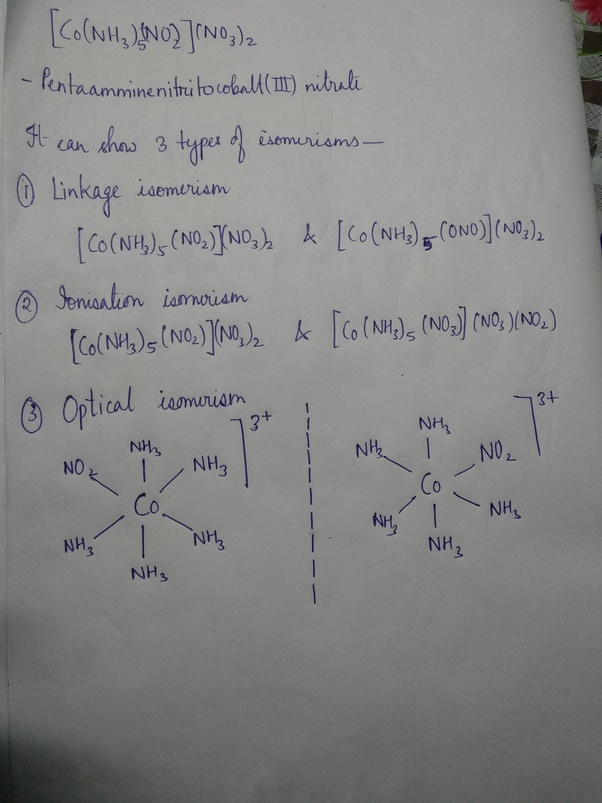 [Co(NH3)5(NO2)](NO3)2
- Pentaamminenitritocobalt(III) nitrate
It can show 3 types of isomerisms—
① Linkage isomerism
[Co(NH3)5(NO2)](NO3)2 & [Co(NH3)5(ONO)](NO3)2
② Ionisation isomerism
[Co(NH3)5(NO2)](NO3)2 & [Co(NH3)5(NO3)](NO3)(NO2)
③ Optical isomerism
NO2 NH3 NH3 ]3+
Co
NH3 NH3 NH3
NH3 NH3 NO2 ]3+
Co
NH3 NH3 NH3